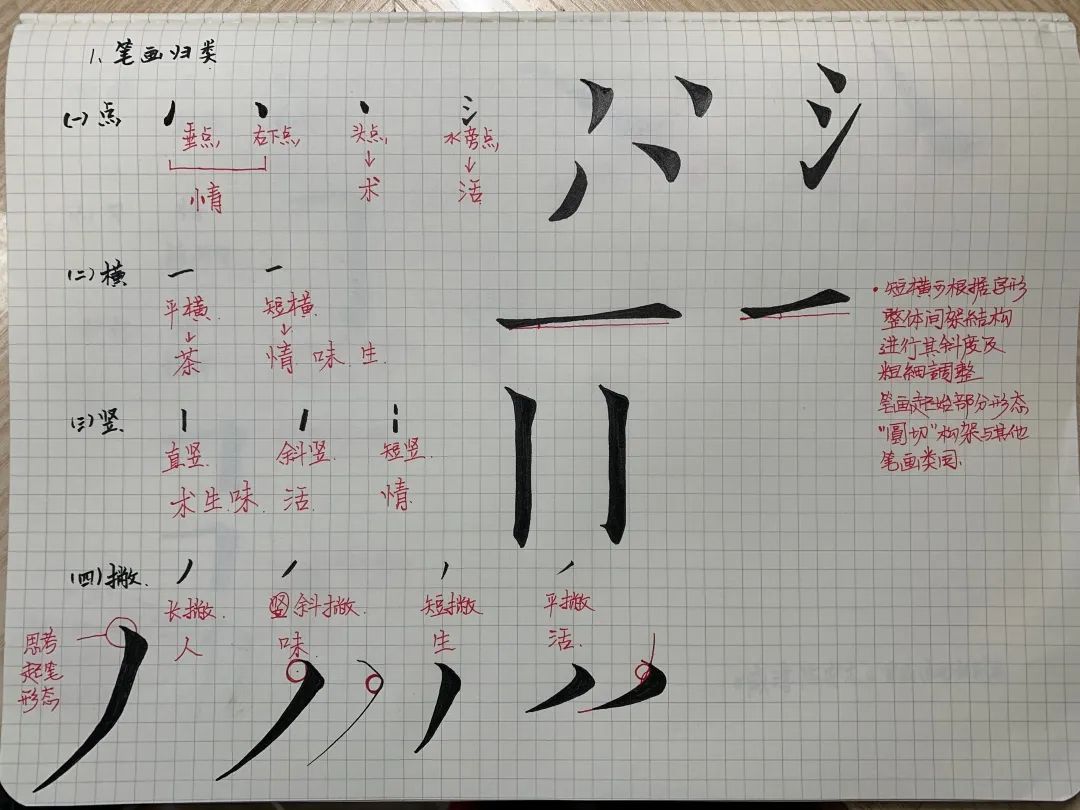 1、笔画归类
(一)点
垂点, 右下点, 头点, 水旁点,
↓ ↓
情 术 活
(二)横
平横. 短横.
↓ ↓
茶 情 味 生.
(三)竖.
直竖. 斜竖. 短竖.
术生.味. 活. 情.
(四)撇.
长撇. 斜撇. 短撇 平撇
人 味. 生 活.
思考
起笔
形态
·短横可根据字形
整体间架结构
进行其斜度及
粗細調整
笔画起始部分形态
"圓切"构架与其他
笔画类同.